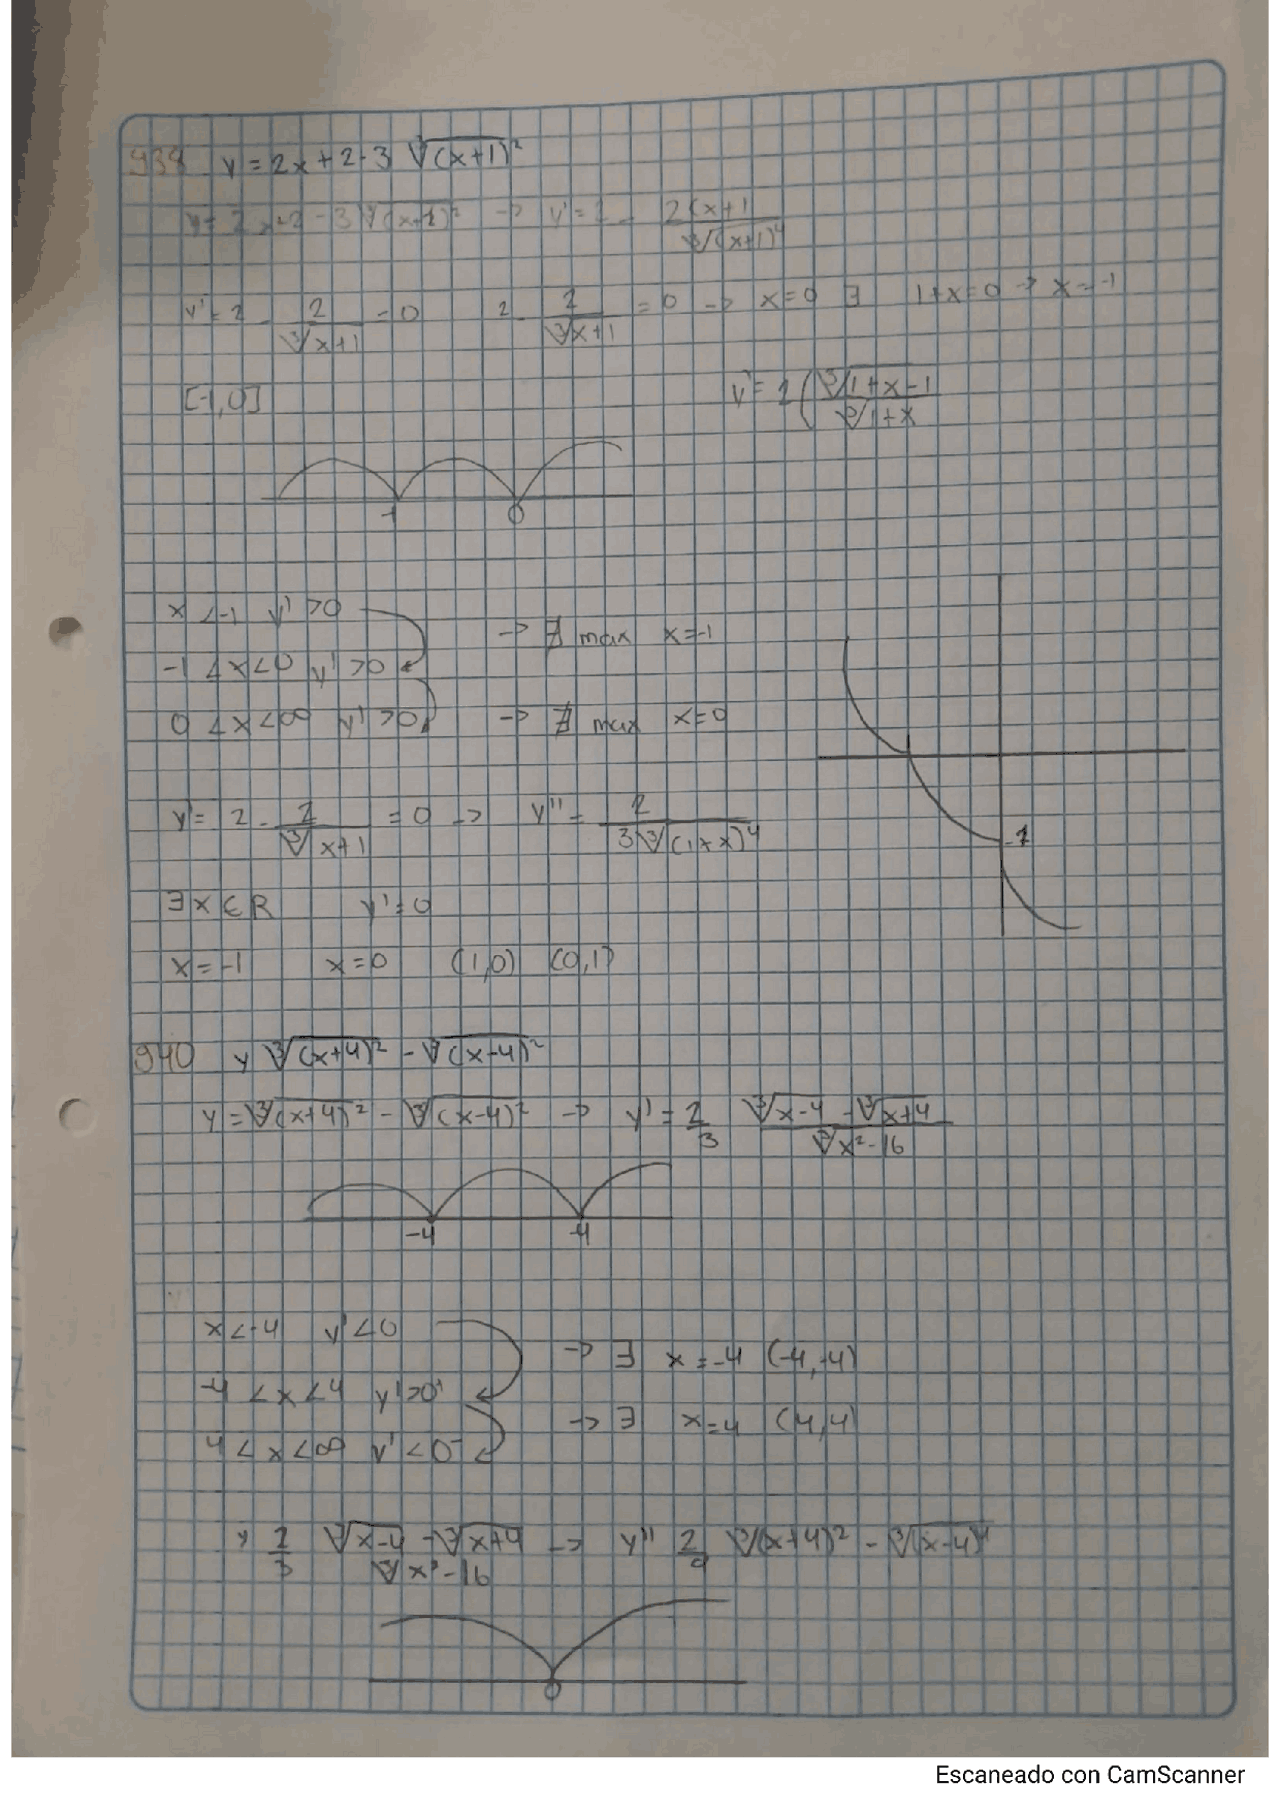 938 y = 2x + 2 - 3 ∛(x+1)²
y = 2x+2 - 3∛(x+1)² → y' = 2 - 2(x+1 / ∛(x+1)⁴
y' = 2 - 2/∛x+1 = 0 2 - 2/∛x+1 = 0 → x=0 ∃ 1+x=0 → x=-1
[-1,0] y' = 2(∛1+x-1 / ∛1+x
-1 0
x <-1 y' >0 → ∄ max x=-1
-1 <x<0 y' >0
0 <x<∞ y' >0 → ∄ max x=0
y' = 2 - 2/∛x+1 = 0 → y'' = 2/3∛(1+x)⁴
-1
∃ x ∈ R y' = 0
x = -1 x=0 (1,0) (0,1)
940 y ∛(x+4)² - ∛(x-4)²
y = ∛(x+4)² - ∛(x-4)² → y' = 2/3 ∛x-4 - ∛x+4 / ∛x²-16
-4 4
x <-4 y' <0 → ∃ x = -4 (-4,-4)
-4 < x < 4 y' >0
→ ∃ x=4 (4,4)
4 < x <∞ y' <0
2/3 ∛x-4 - ∛x+4 / ∛x²-16 → y'' 2/9 ∛(x+4)² - ∛(x-4)⁴
0
Escaneado con CamScanner